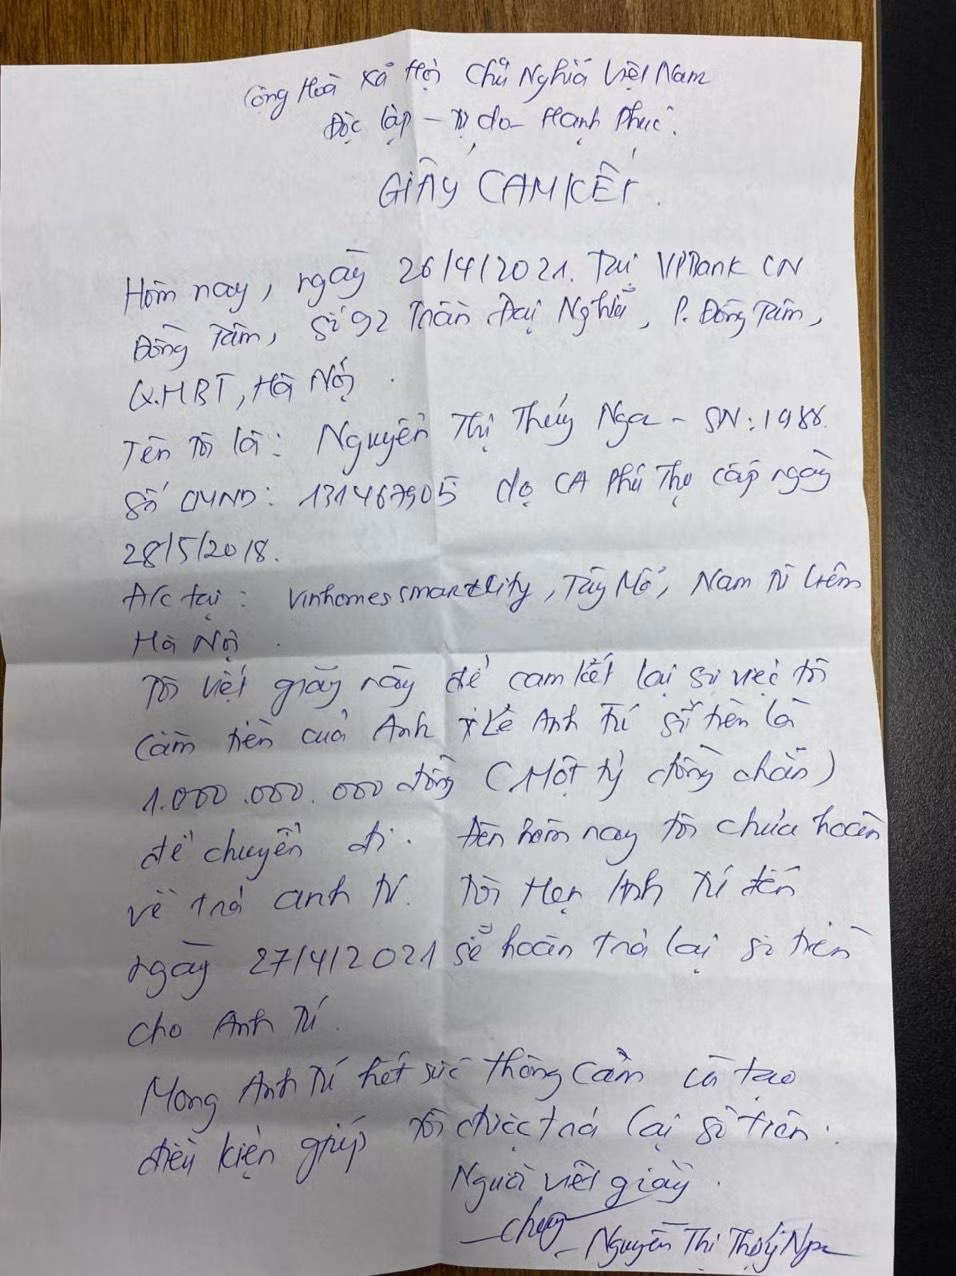 Cộng Hoà Xã Hội Chủ Nghĩa Việt Nam
Độc lập - Tự do - Hạnh Phúc.
GIẤY CAM KẾT.
Hôm nay, ngày 26/4/2021. Tại VPBank CN
Đồng Tâm, số 92 Trần Đại Nghĩa, P. Đồng Tâm,
Q.HBT, Hà Nội.
Tên tôi là: Nguyễn Thị Thúy Nga - SN: 1988.
Số CMND: 131467905 do CA Phú Thọ cấp ngày
28/5/2018.
Đ/c tại: Vinhomes smartcity, Tây Mỗ, Nam Từ Liêm
Hà Nội.
Tôi viết giấy này để cam kết lại sự việc tôi
cầm tiền của Anh Lê Anh Tú số tiền là
1.000.000.000 đồng (Một tỷ đồng chẵn)
để chuyển đi. Đến hôm nay tôi chưa hoàn
về trả anh Tú. Tôi Hẹn Anh Tú đến
ngày 27/4/2021 sẽ hoàn trả lại số tiền
cho Anh Tú.
Mong Anh Tú hết sức thông cảm và tạo
điều kiện giúp tôi được trả lại số tiền.
Người viết giấy.
Nguyễn Thị Thúy Nga